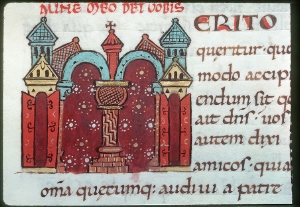 MEO VOBIS
ERITO
queritur · quo
modo accipi
endum sit qd
ait dns · uos
autem dixi
amicos · quia
om̅a quęcumq; audiui a patre